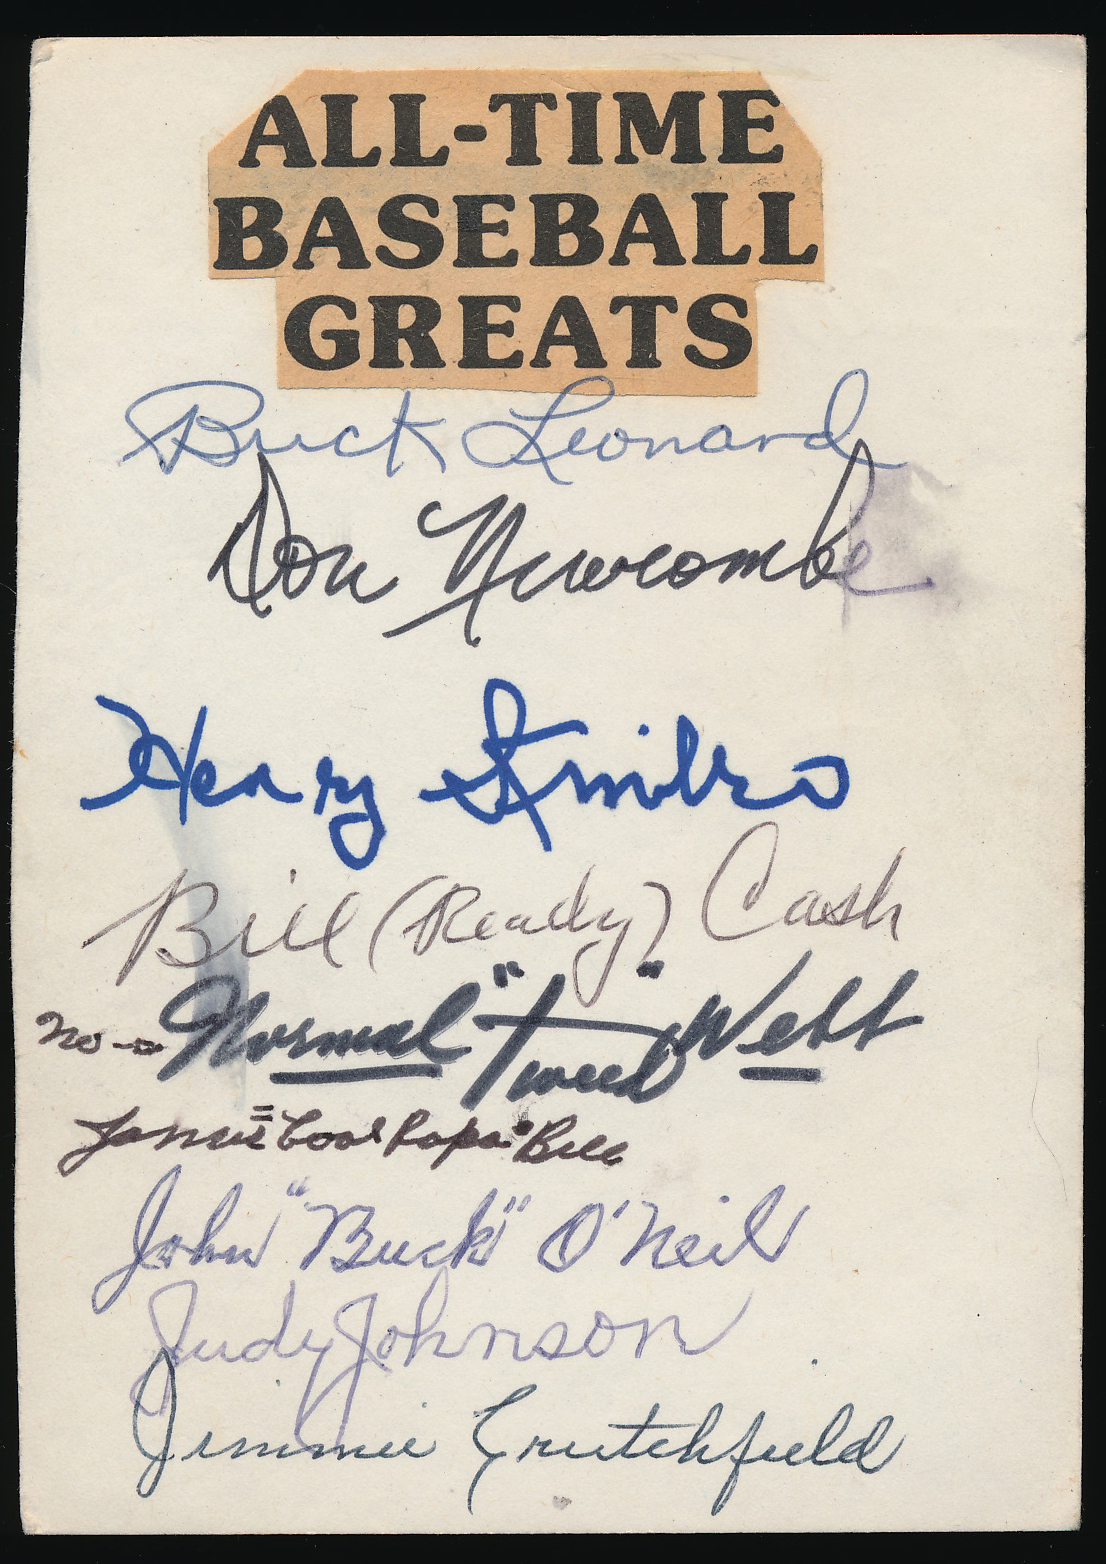 ALL-TIME
BASEBALL
GREATS
Buck Leonard
Don Newcombe
Henry Kimbro
Bill (Ready) Cash
no - Normal "Tweed" Webb
James "Cool Papa" Bell
John "Buck" O'Neil
Judy Johnson
Jimmie Crutchfield